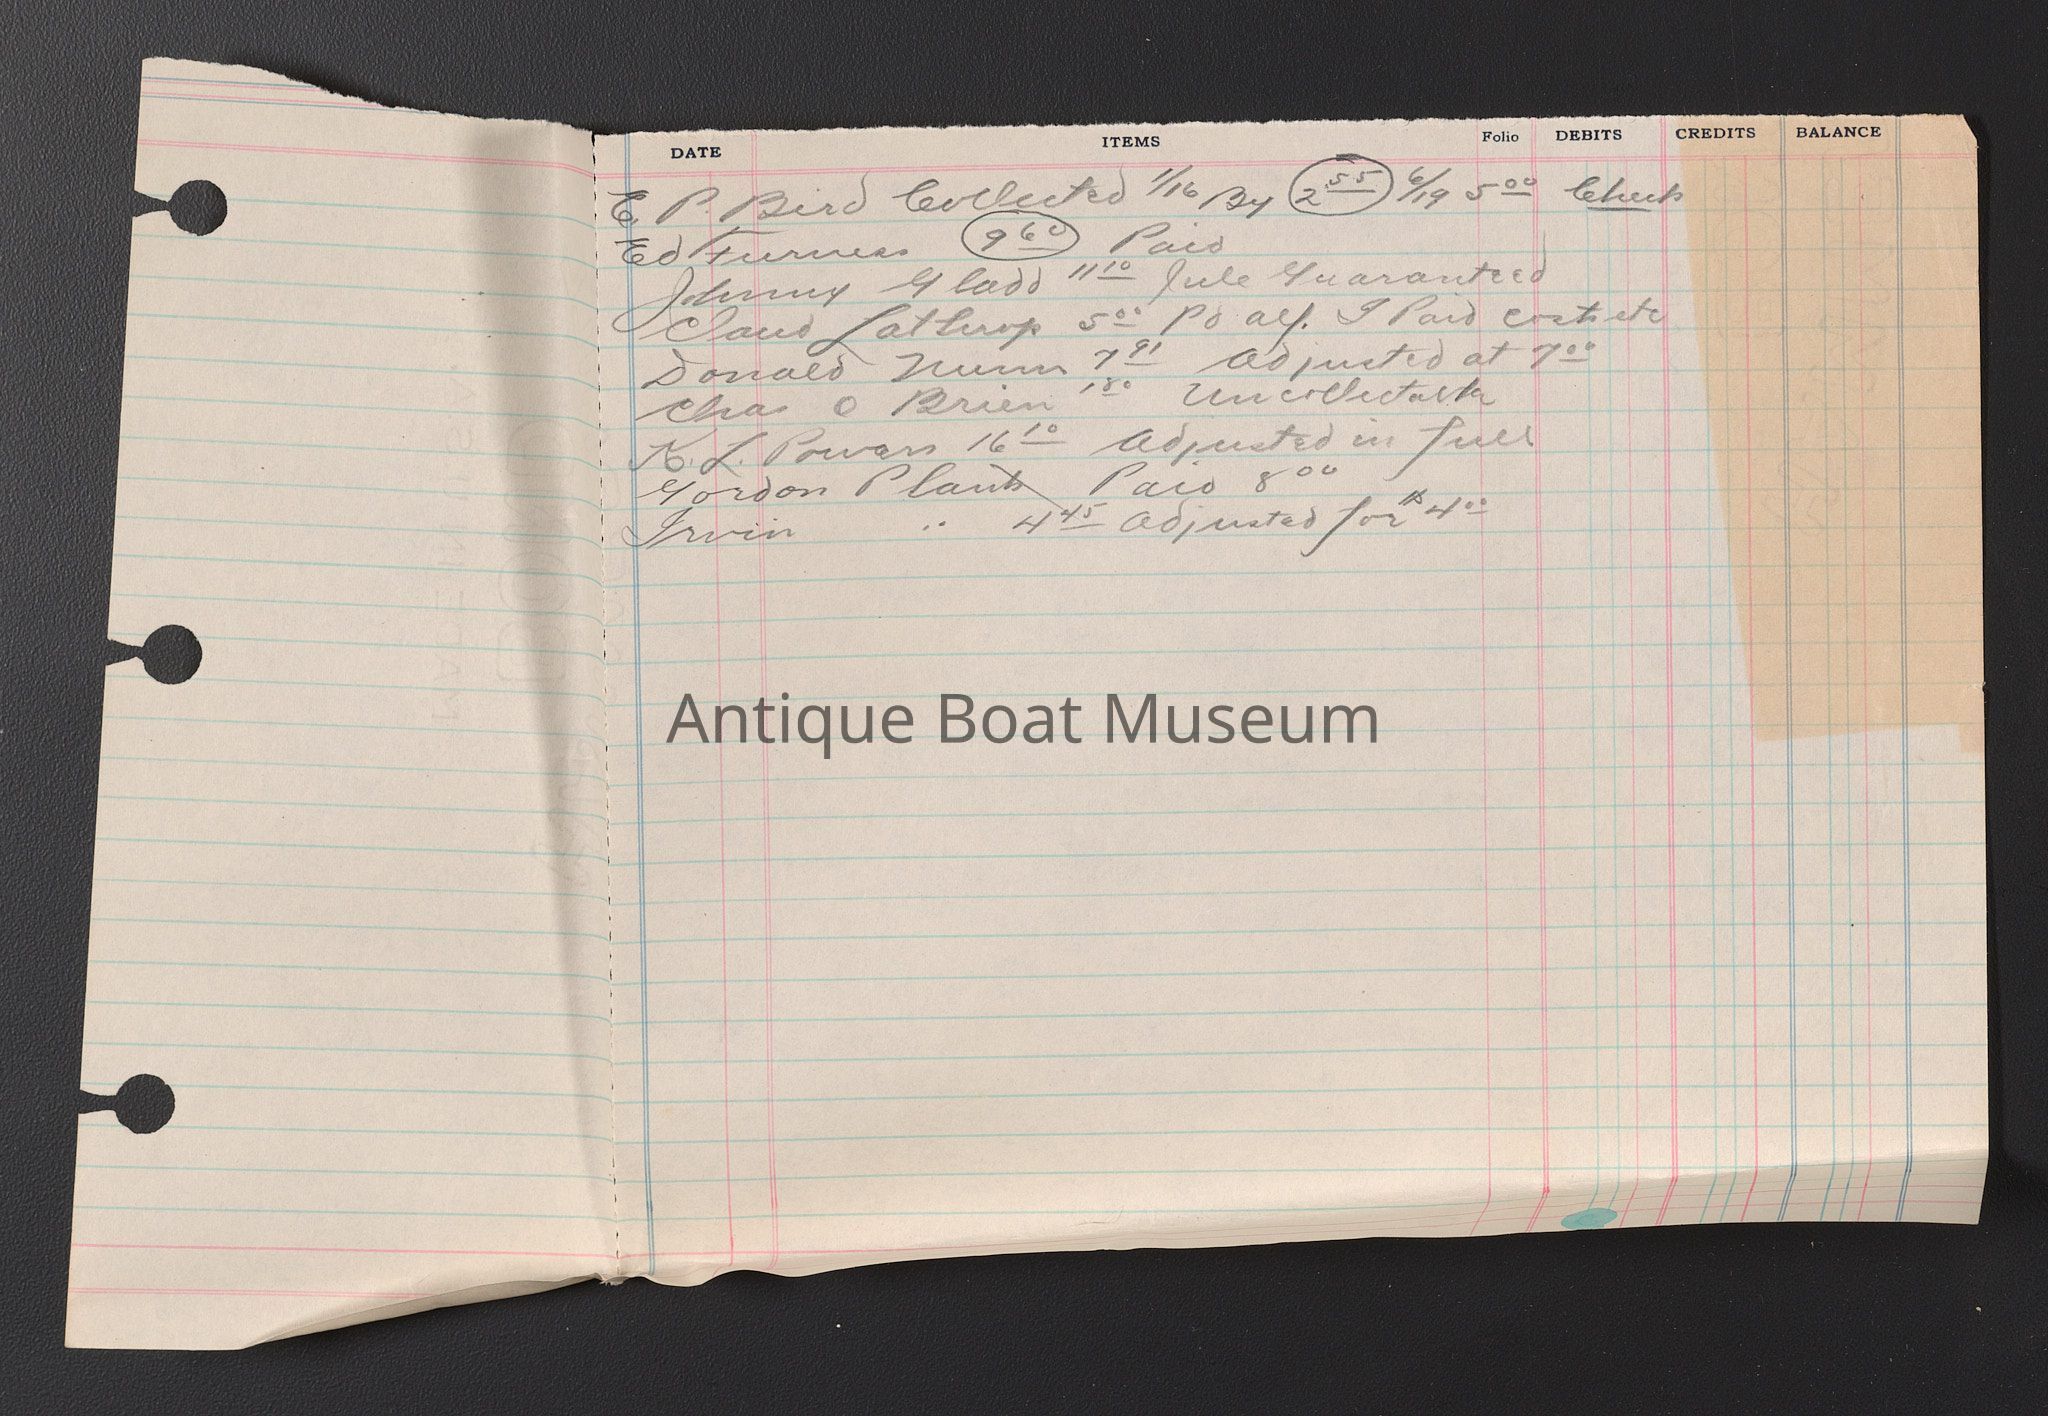 DATE ITEMS Folio DEBITS CREDITS BALANCE
E. P. Bird Collected 1/16 By 2 55 6/19 5 00 Check
Ed Furness 9 60 Paid
Johnny Gladd 11 10 Jule Guaranteed
Claud Lathrop 5 00 Pd I Paid costs etc
Donald Nunn 7 91 Adjusted at 7 00
Chas O Brien 1 80 Uncollectable
K. L. Powers 16 10 Adjusted in full
Gordon Plants Paid 8 00
Irvin " 4 45 Adjusted for 4 00
Antique Boat Museum